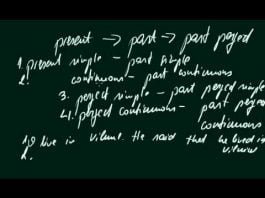 present → past → past perfect
1. present simple - past simple
2. continuous - past continuous
3. perfect simple - past perfect simple
4. perfect continuous - past perfect
continuous
1. I live in Vilnius. He said that he lived in
Vilnius
2.